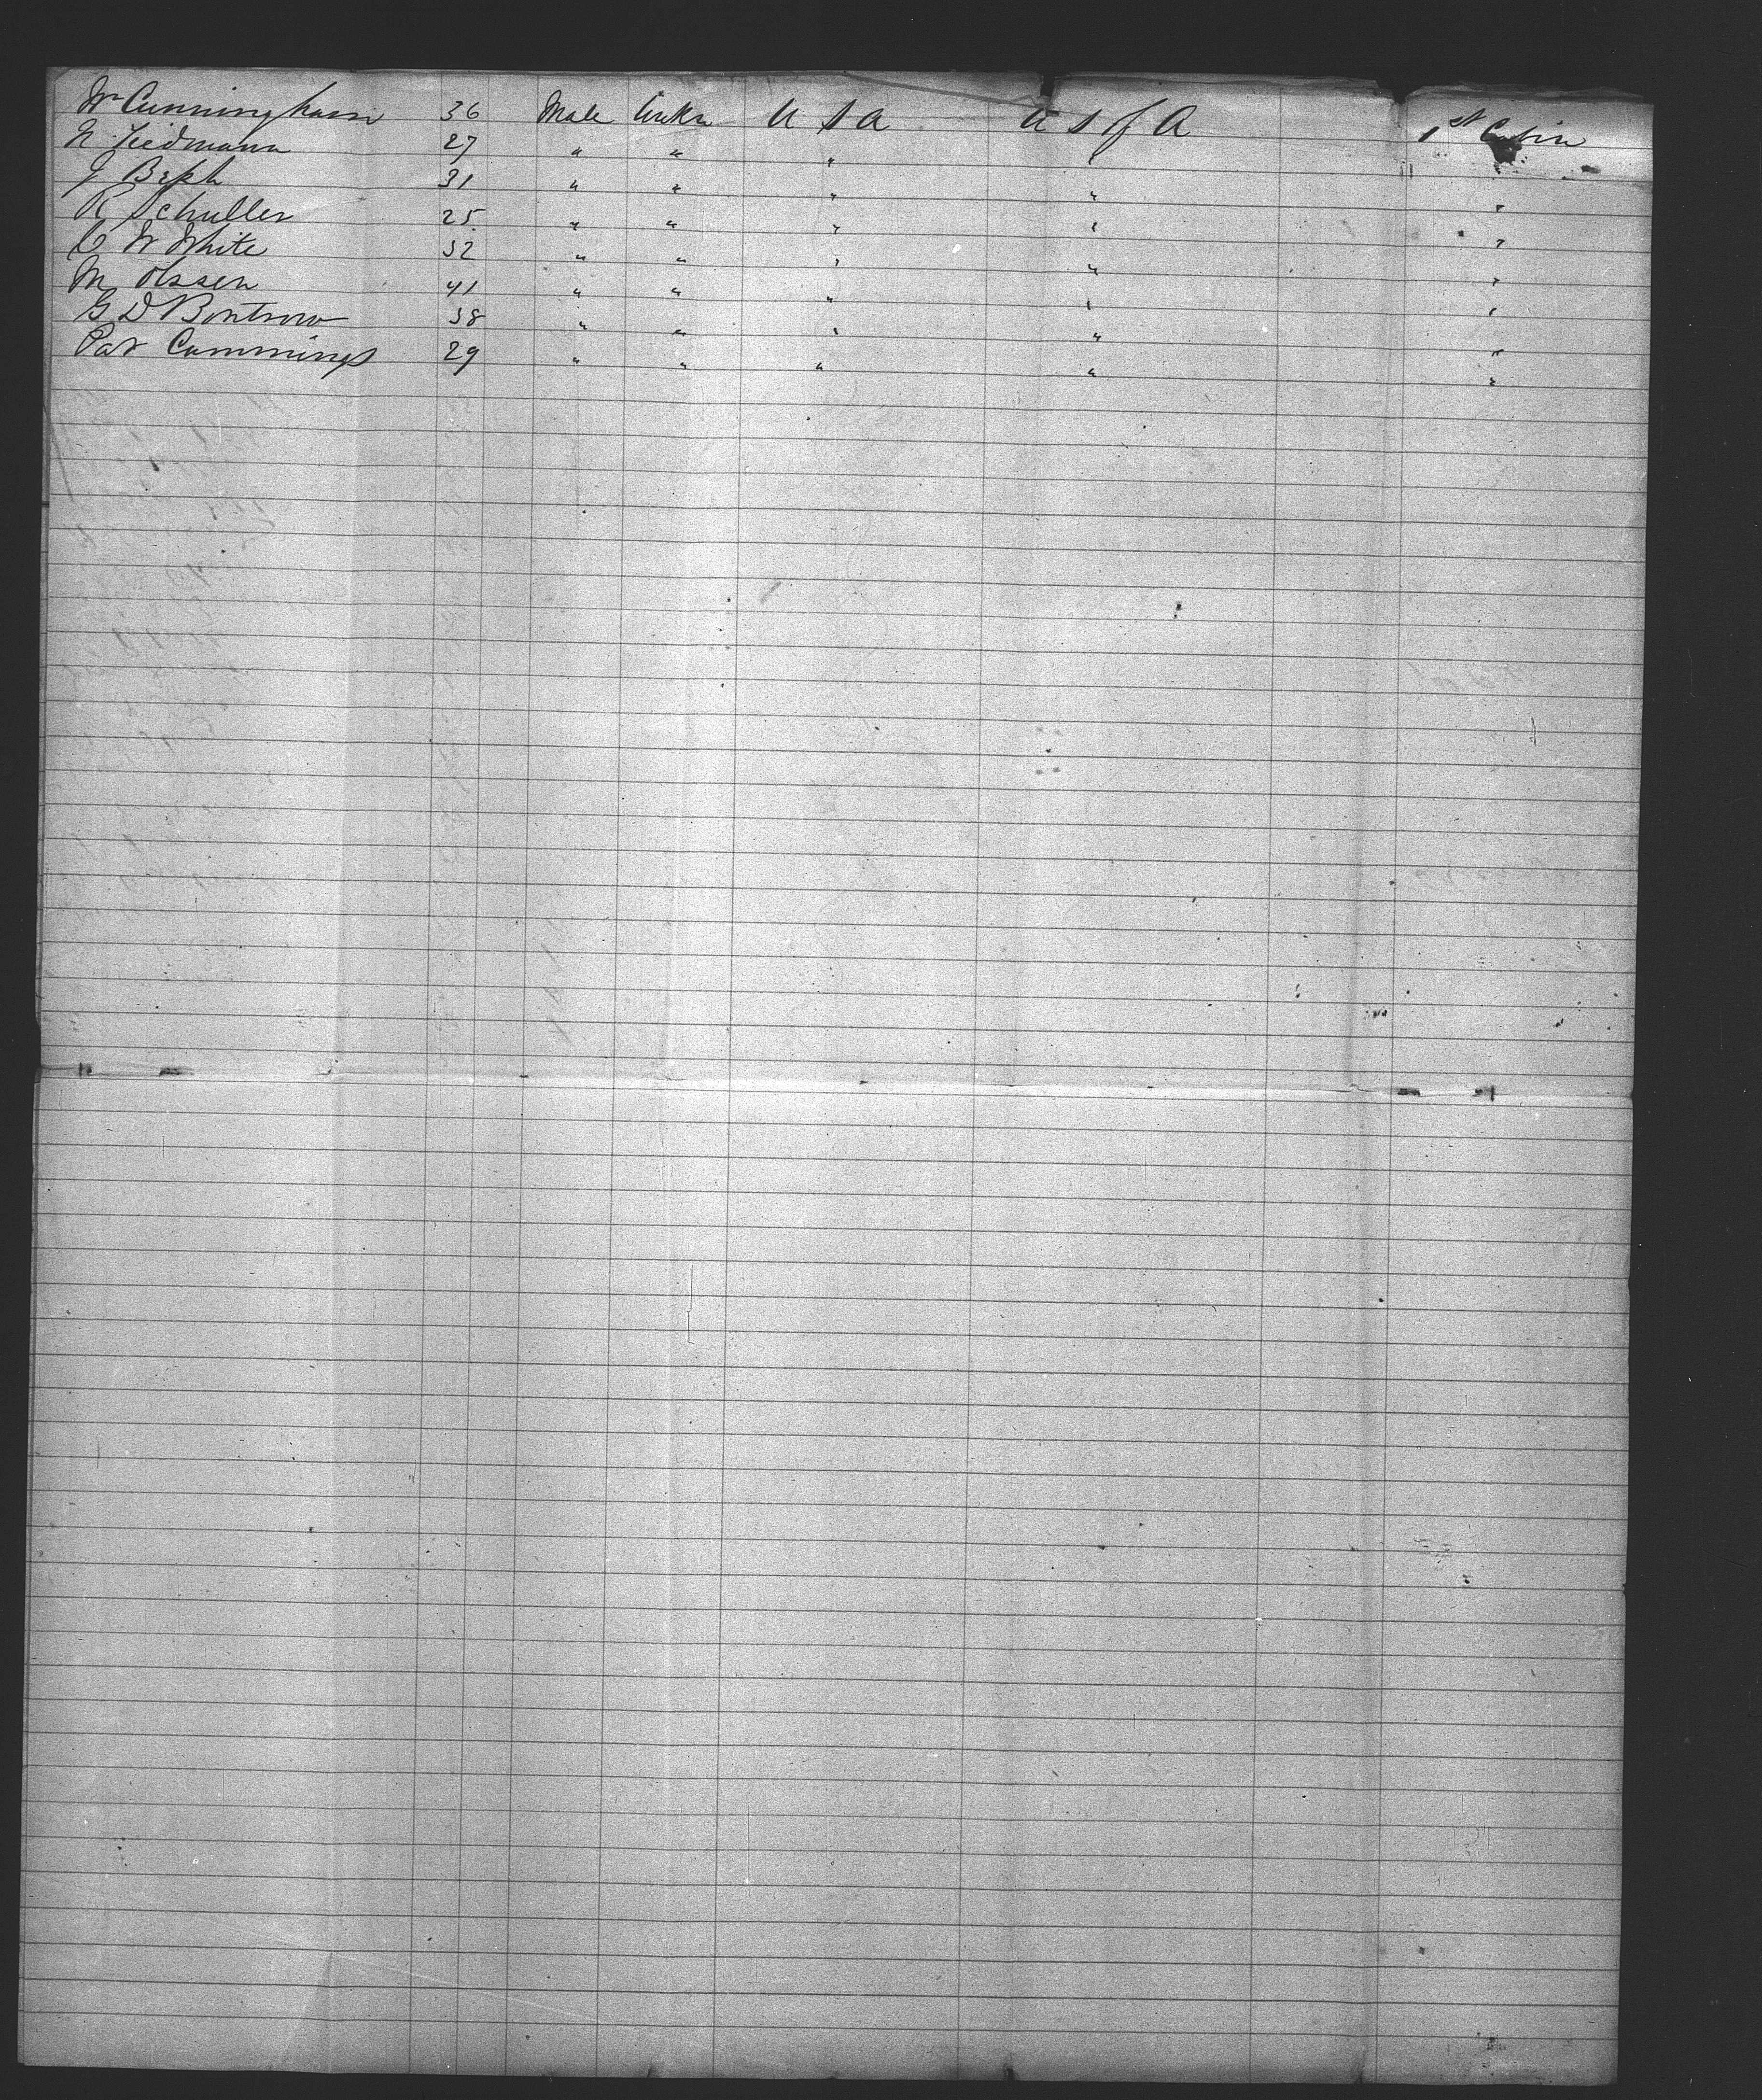 Wm Cunningham 36 Male Unkn U S A U S of A 1st Cabin
N Tiedmann 27 " " " " "
J 31 " " " " "
R Schuller 25 " " " " "
C W White 32 " " " " "
M Olssen 41 " " " " "
G D Bontrow 38 " " " " "
Pat Cummings 29 " " " " "